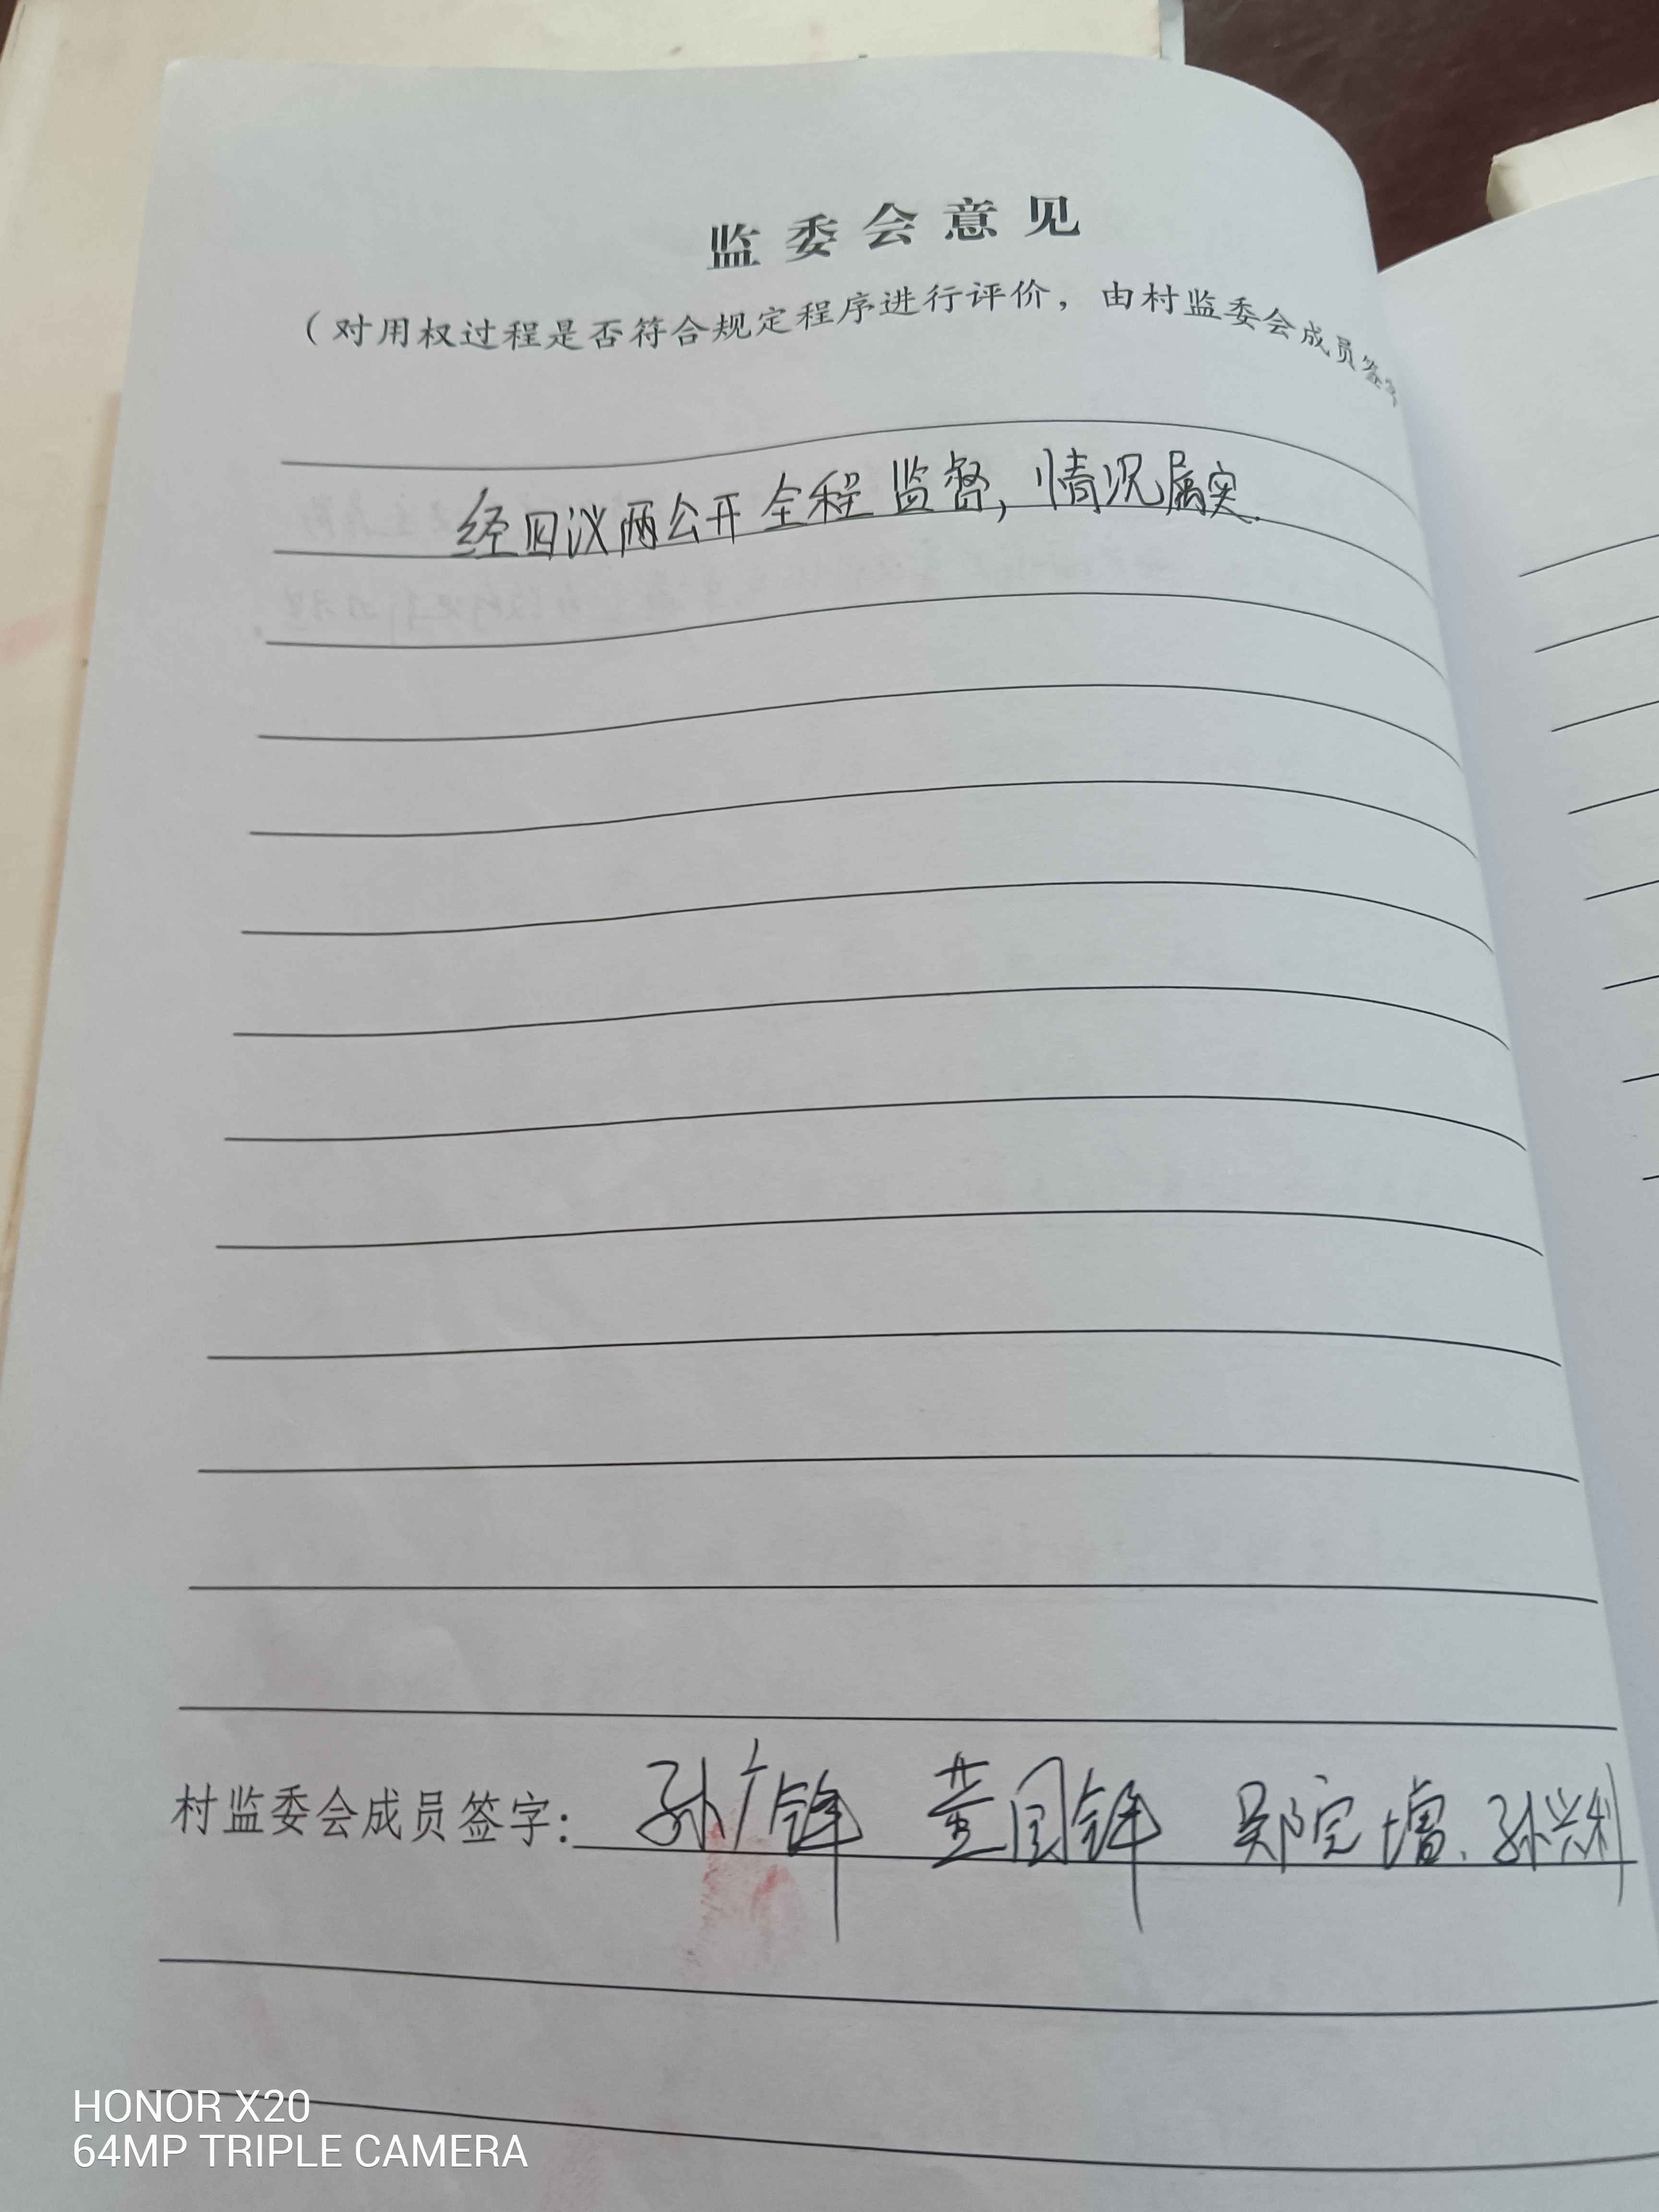 监委会意见
（对用权过程是否符合规定程序进行评价，由村监委会成员签字
经四议两公开全程监督，情况属实.
村监委会成员签字：孙广锋 董国锋 郑宪增、孙兴利
HONOR X20
64MP TRIPLE CAMERA